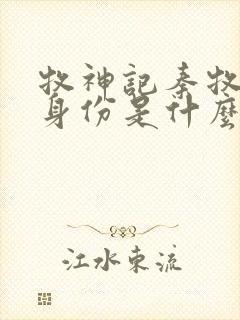 牧神記秦牧
身份是什麼
江水東流